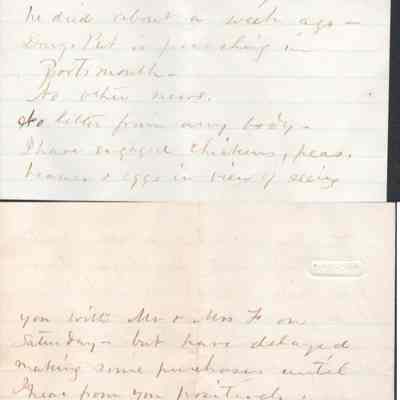 he died about a week ago -
is preaching in
Portsmouth -
No other news.
No letter from any body -
I have engaged chickens, peas,
beans & eggs in view of seeing
you with Mr & Mrs F on
Saturday - but have delayed
making some purchases until
I hear from you positively.